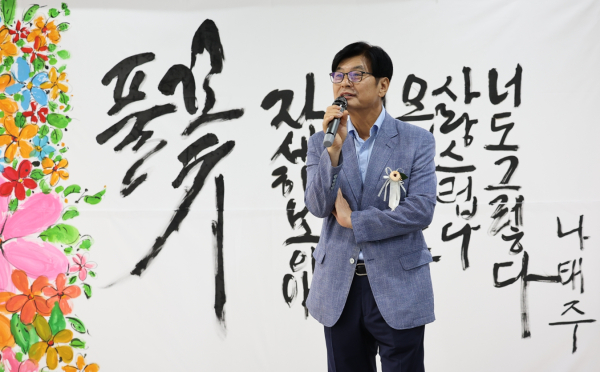 풀꽃
자세히 보아야
오
사랑스럽다
너도 그렇다
나태주